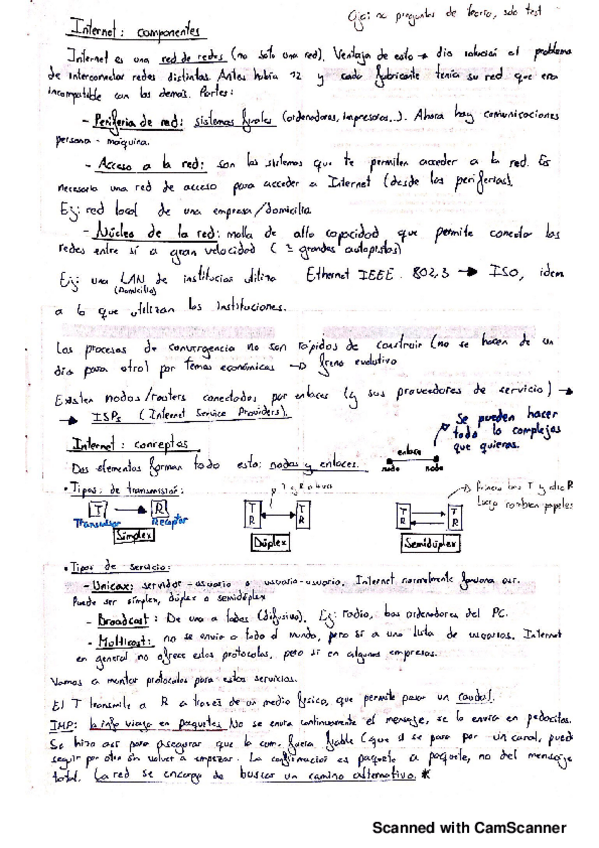 Ojo: no preguntas de teoría, solo test
Internet: componentes
Internet es una red de redes (no solo una red). Ventaja de esto → dio solución al problema
de interconectar redes distintas. Antes había 12 y cada fabricante tenía su red que era
incompatible con las demás. Partes:
- Periferia de red: sistemas finales (ordenadores, impresoras,..). Ahora hay comunicaciones
persona - máquina.
- Acceso a la red: son los sistemas que te permiten acceder a la red. Es
necesaria una red de acceso para acceder a Internet (desde las periferias).
Ej: red local de una empresa/domicilio
- Núcleo de la red: malla de alta capacidad que permite conectar las
redes entre sí a gran velocidad ( = grandes autopistas)
Ej: una LAN de institución utiliza Ethernet IEEE. 802,3 → ISO, idem
(Domicilio)
a lo que utilizan las instituciones.
Los procesos de convergencia no son rápidos de construir (no se hacen de un
día para otro) por temas económicos → freno evolutivo
Existen nodos/routers conectados por enlaces (y sus proveedores de servicio) →
→ ISPs (Internet Service Providers).
Se pueden hacer
todo lo complejas
que quieras.
Internet: conceptos
enlace
nodo nodo
Dos elementos forman todo esto: nodos y enlaces.
• Tipos de transmisión:
T R
Transmisor Receptor
Simplex
T R T R
Dúplex
T R T R
Semidúplex
Primero uno T y otro R
luego cambian papeles
• Tipos de servicio:
- Unicax: servidor - usuario o usuario-usuario. Internet normalmente funciona así.
Puede ser simplex, dúplex o semidúplex
- Broadcast: De uno a todos (difusivo). Ej: radio, bus ordenadores del PC.
- Multicast: no se envía a todo el mundo, pero sí a una lista de usuarios. Internet
en general no ofrece estos protocolos, pero sí en algunas empresas.
Vamos a montar protocolos para estos servicios.
El T transmite a R a través de un medio físico, que permite pasar un caudal.
IMP: la info viaja en paquetes. No se envía continuamente el mensaje, se lo envía en pedacitos.
Se hizo así para asegurar que la com. fuera fiable (que si se para por un canal, puede
seguir por otro sin volver a empezar. La confirmación es paquete a paquete, no del mensaje
total. La red se encarga de buscar un camino alternativo. *
Scanned with CamScanner